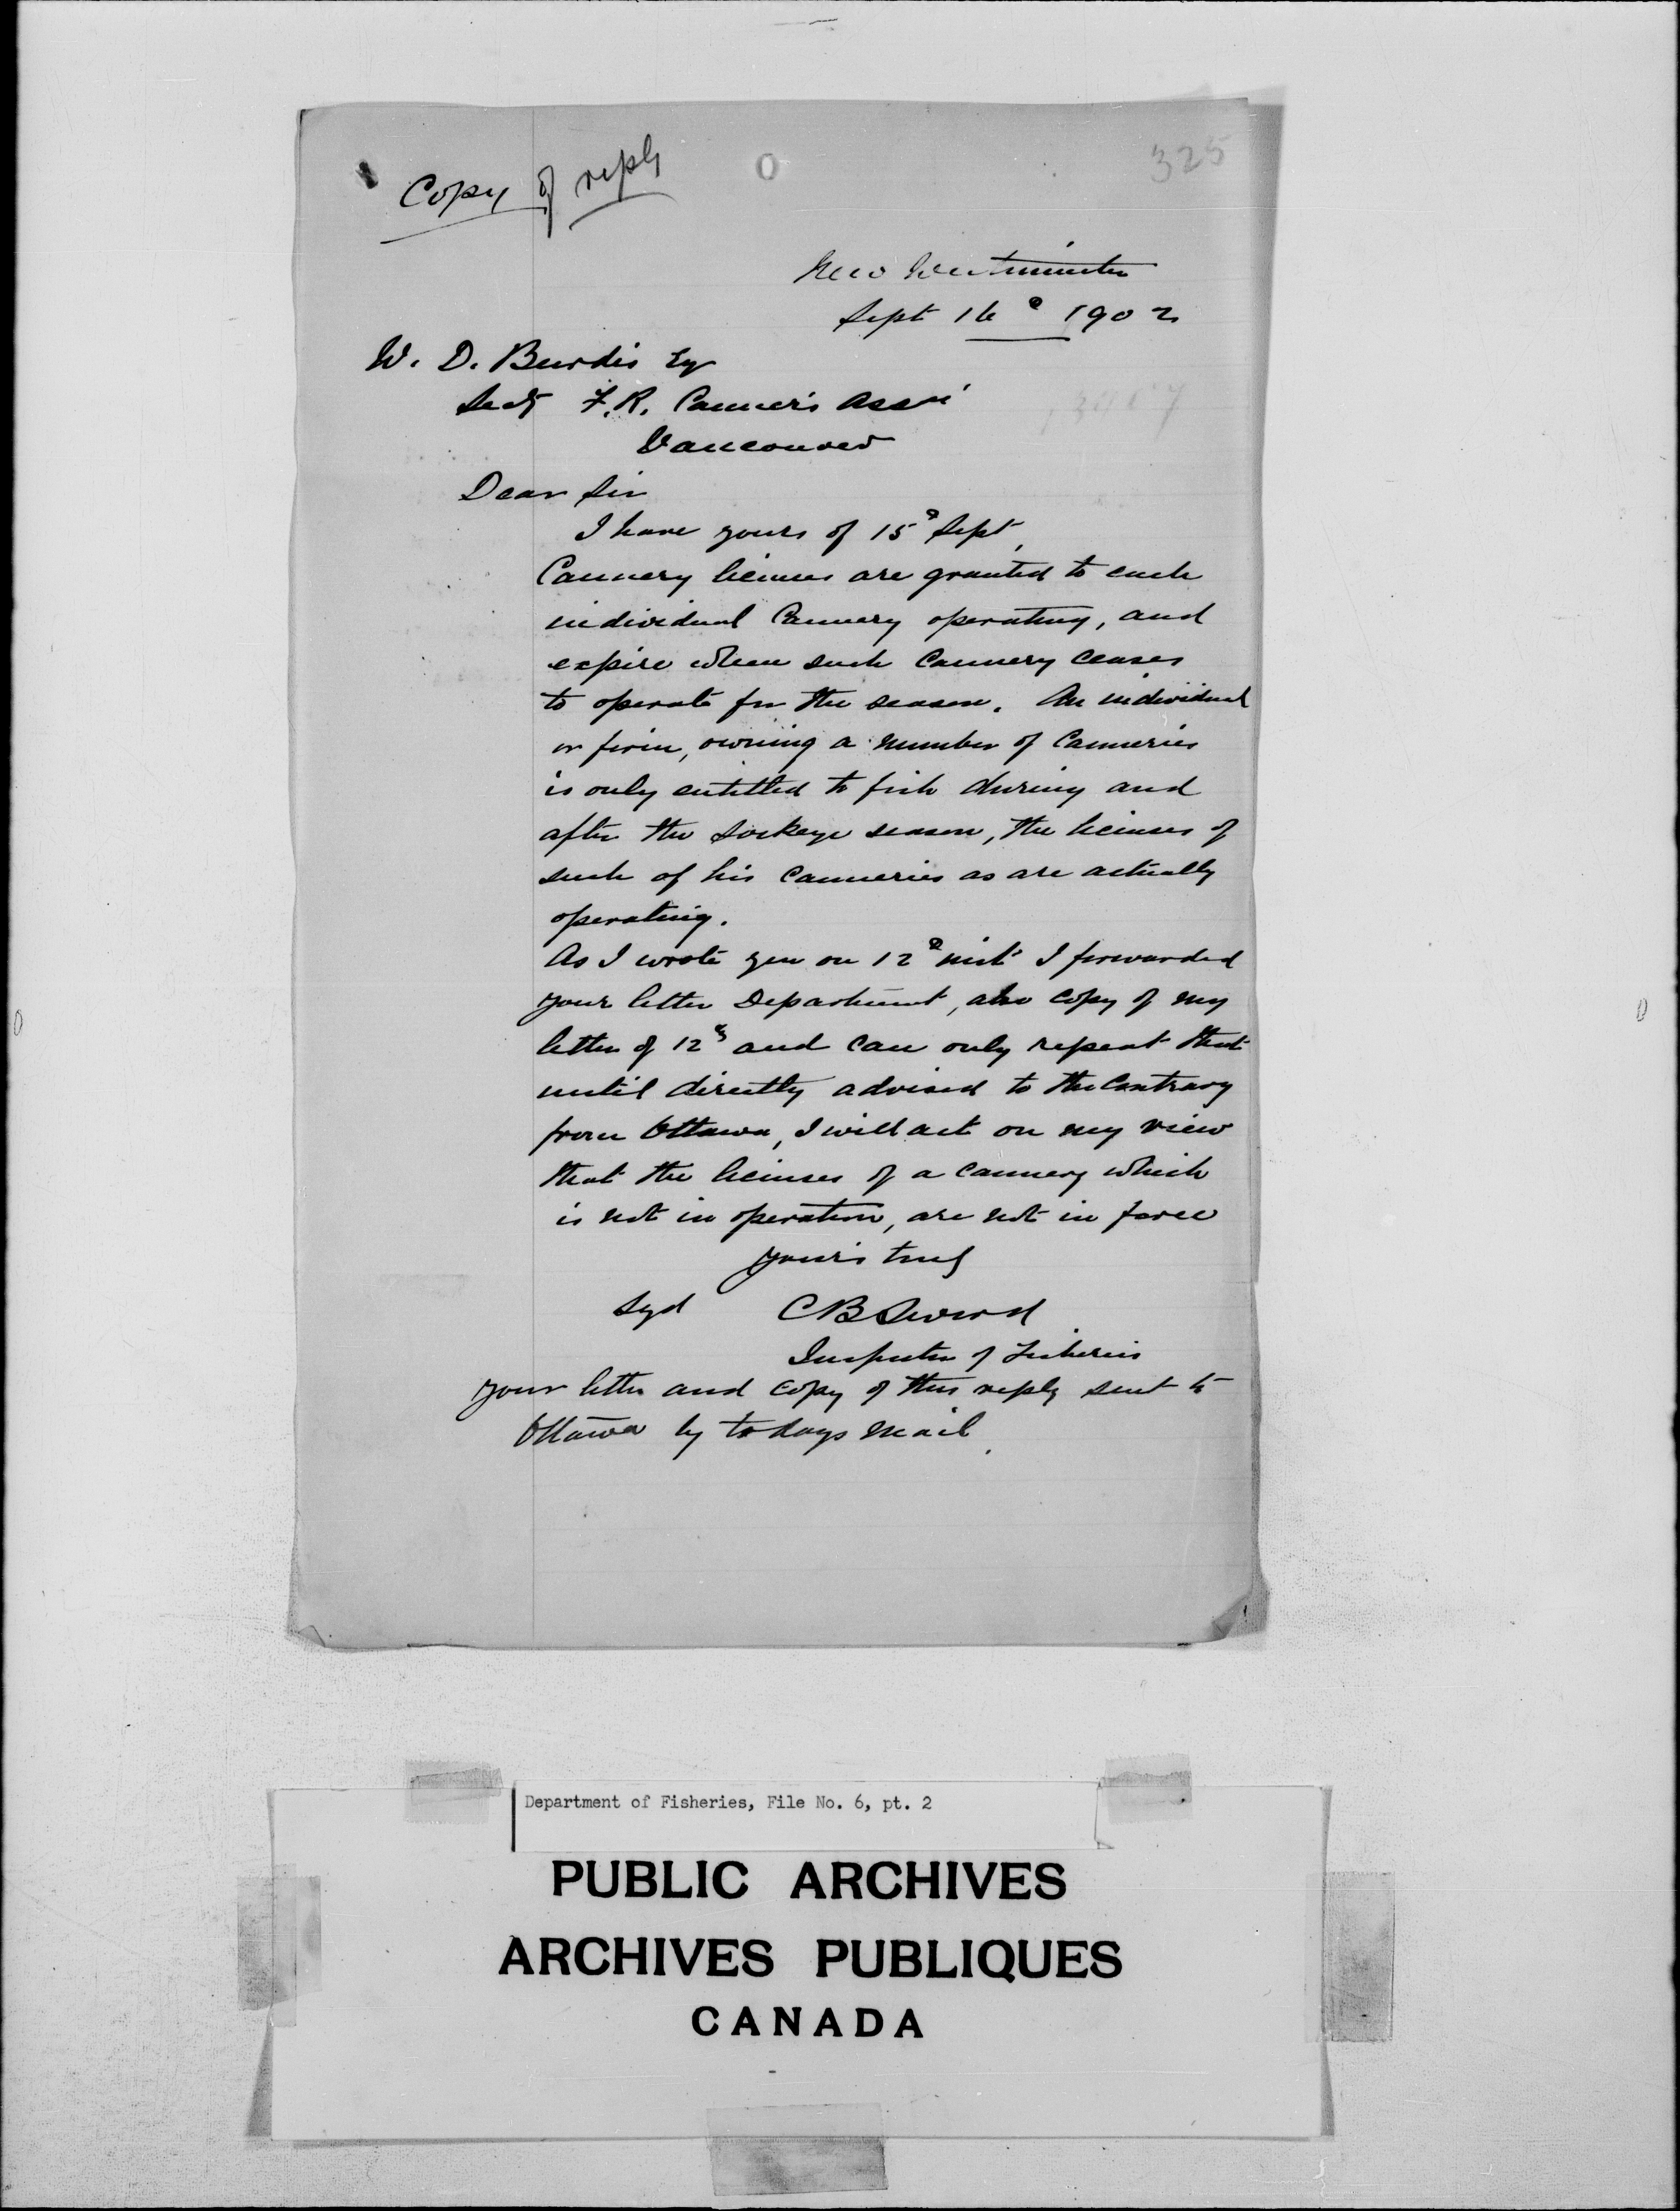 325
Copy of reply
New Westminster
Sept 16th 1902
W. D. Burdis Esq
Secty F. R. Canner's Assn
Vancouver
Dear Sir
I have yours of 15th Sept,
Cannery licenses are granted to each
individual Cannery operating, and
expire when such Cannery ceases
to operate for the season. An individual
or firm, owning a number of Canneries
is only entitled to fish during and
after the Sockeye season, the licenses of
such of his Canneries as are actually
operating.
As I wrote you on 12th inst I forwarded
your letter Department, also copy of my
letter of 12th and can only repeat that
until directly advised to the Contrary
from Ottawa, I will act on my view
that the licenses of a cannery which
is not in operation, are not in force
Your's truly
Sgd C B Sword
Inspector of Fisheries
Your letter and copy of this reply sent to
Ottawa by to days mail.
Department of Fisheries, File No. 6, pt. 2
PUBLIC ARCHIVES
ARCHIVES PUBLIQUES
CANADA